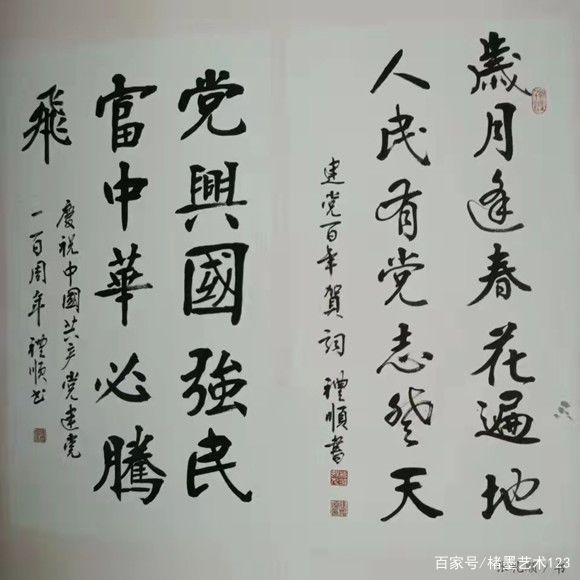 歲月逢春花遍地
人民有党志登天
建党百年賀詞 禮順書
党興國強民
富中華必騰
飛
慶祝中國共产党建党
一百周年 禮順书
百家号/楮墨艺术123